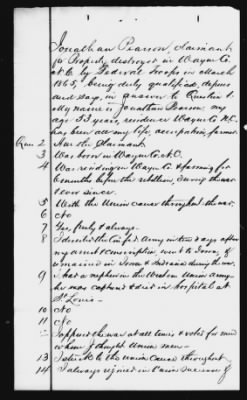 Jonathan Pearson, claimant
for Property destroyed in Wayne Co.
N.C. by Federal Troops in March
1865, being duly qualified, deposes
and says, in answer to Question 1.
My name is Jonathan Pearson, my
age 53 years, residence Wayne Co N.C.
has been all my life, occupation, farmer.
Ques 2 Am the Claimant.
3 Was born in Wayne Co, N.C.
4 Was residing in Wayne Co. & farming for
6 months before the rebellion, during the war
& ever since.
5 With the Union cause throughout the war.
6 No
7 Yes, freely & always.
8 I deserted the Army in two days after
my arrest & conscription, went to Iowa, &
remained in Iowa & Indiana during the war.
9 I had a nephew in the Western Union army
he was captured & died in hospital at
St. Louis—
10 No
11 No
I opposed the war at all times & voted for men
whom I thought Union men—
13 I stuck to the union cause throughout
14 I always rejoiced in Union success &